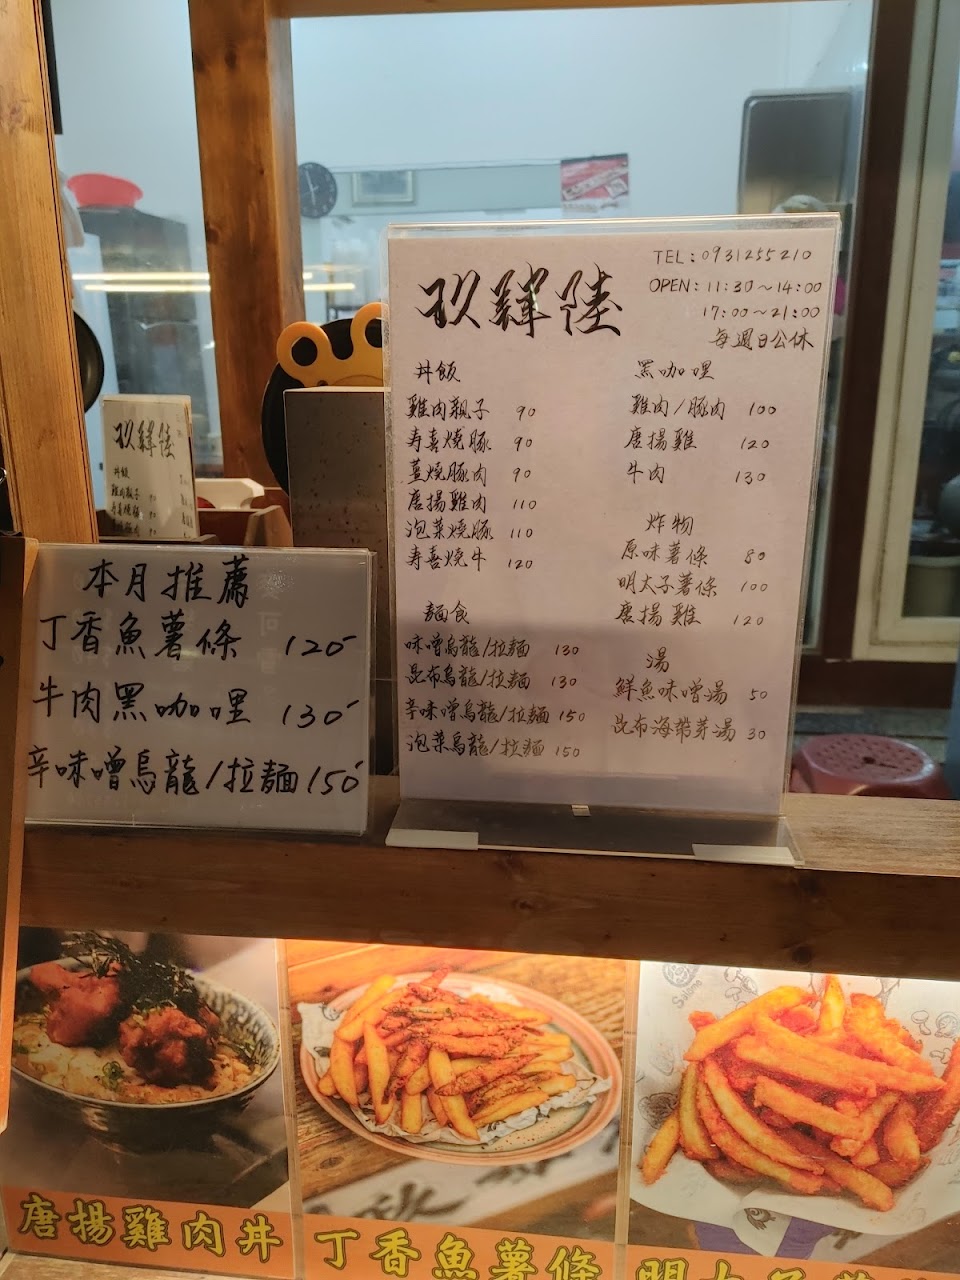 玖輝陸
TEL:0931255210
OPEN:11:30~14:00
17:00~21:00
每週日公休
丼飯
雞肉親子 90
寿喜燒豚 90
薑燒豚肉 90
唐揚雞肉 110
泡菜燒豚 110
寿喜燒牛 120
麵食
味噌烏龍/拉麵 130
昆布烏龍/拉麵 130
辛味噌烏龍/拉麵 150
泡菜烏龍/拉麵 150
黑咖哩
雞肉/豚肉 100
唐揚雞 120
牛肉 130
炸物
原味薯條 80
明太子薯條 100
唐揚雞 120
湯
鮮魚味噌湯 50
昆布海帶芽湯 30
玖輝陸
丼飯
雞肉親子 90
寿喜燒豚
本月推薦
丁香魚薯條 120
牛肉黑咖哩 130
辛味噌烏龍/拉麵 150
唐揚雞肉丼
丁香魚薯條
明太子